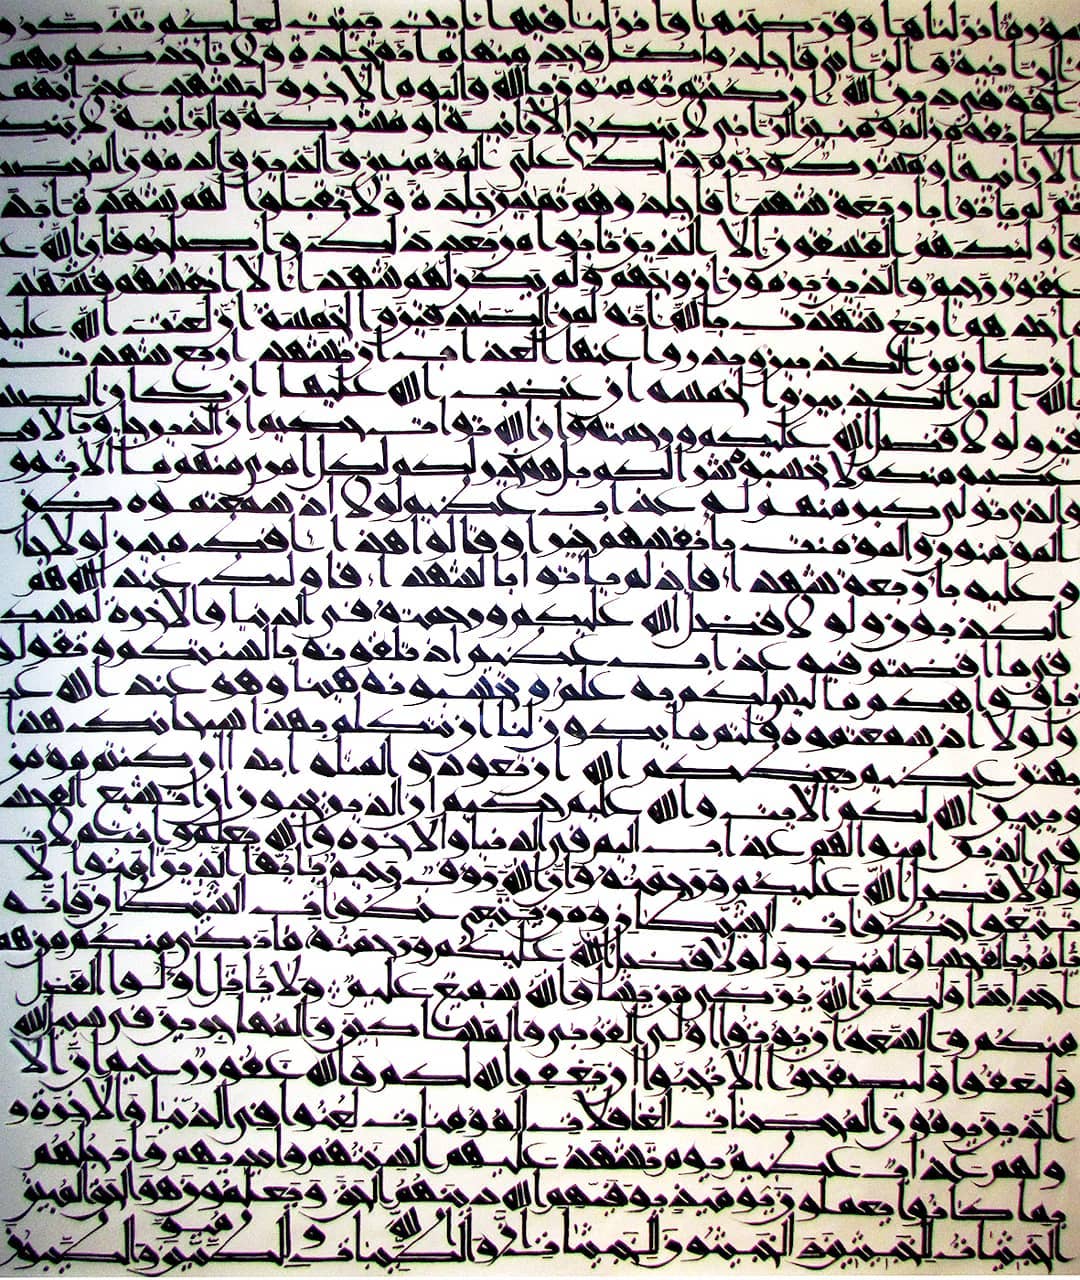 سورة انزلناها وفرضنها وانزلنا فيها ايت بينت لعلكم تذكرو
ن الزانية والزاني فاجلدوا كل وحد منهما مائة جلدة ولا تاخذكم بهما
رافة في دين الله ان كنتم تومنون بالله واليوم الاخر وليشهد عذابهما
طائفة من المؤمنين الزاني لا ينكح الا زانية او مشركة والزانية لا ينكحها
الا زانية او مشرك وحرم ذلك على المؤمنين والذين يرمون المحصنت
ثم لم ياتوا باربعة شهداء فاجلدوهم ثمنين جلدة ولا تقبلوا لهم شهدة ابدا
واولئك هم الفسقون الا الذين تابوا من بعد ذلك واصلحوا فان الله
غفور رحيم والذين يرمون ازوجهم ولم يكن لهم شهداء الا انفسهم فشهدة
احدهم اربع شهدت بالله انه لمن الصدقين والخمسة ان لعنت الله عليه
ان كان من الكذبين ويدروا عنها العذاب ان تشهد اربع شهدت
بالله انه لمن الكذبين والخمسة ان غضب الله عليها ان كان من الصد
قين ولولا فضل الله عليكم ورحمته وان الله تواب حكيم ان الذين جاءو بالافك
عصبة منكم لا تحسبوه شرا لكم بل هو خير لكم لكل امرى منهم ما الاثم و
والذي تولى كبره منهم له عذاب عظيم لولا اذ سمعتموه ظن
المومنون والمومنت بانفسهم خيرا وقالوا هذا افك مبين لولا جاءو
عليه باربعة شهداء فاذ لم ياتوا بالشهداء فاولئك عند الله هم
الكذبون ولولا فضل الله عليكم ورحمته في الدنيا والاخرة لمسكم
في ما افضتم فيه عذاب عظيم اذ تلقونه بالسنتكم وتقولون
بافواهكم ما ليس لكم به علم وتحسبونه هينا وهو عند الله عظيم
ولولا اذ سمعتموه قلتم ما يكون لنا ان نتكلم بهذا سبحانك هذا
بهتن عظيم يعظكم الله ان تعودوا لمثله ابدا ان كنتم مؤمنين
ويبين الله لكم الايت والله عليم حكيم ان الذين يحبون ان تشيع الفحشة
في الذين امنوا لهم عذاب اليم في الدنيا والاخرة والله يعلم وانتم لا ت
ولولا فضل الله عليكم ورحمته وان الله رءوف رحيم يايها الذين امنوا لا
تتبعوا خطوات الشيطان ومن يتبع خطوات الشيطان فانه
يامر بالفحشا والمنكر ولولا فضل الله عليكم ورحمته ما زكى منكم من
احد ابدا ولكن الله يزكي من يشاء والله سميع عليم ولا ياتل اولوا الفضل
منكم والسعة ان يؤتوا اولي القربى والمساكين والمهاجرين في سبيل الله
وليعفوا وليصفحوا الا تحبوا ان يغفر الله لكم والله غفور رحيم ان الا
الذين يرمون المحصنات الغافلات المؤمنات لعنوا في الدنيا والاخرة و
ولهم عذاب عظيم يوم تشهد عليهم السنتهم وايديهم وارجلهم
بما كانوا يعملون يومئذ يوفيهم الله دينهم الحق ويعلمون ان الله هو الحق المبين
الخبيثات للخبيثين والخبيثون للخبيثات والطيبات للطيبين والطيبون